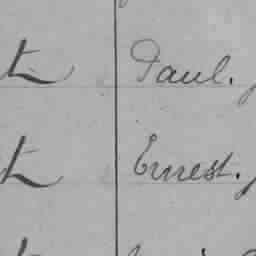 t Paul.
t Ernest.